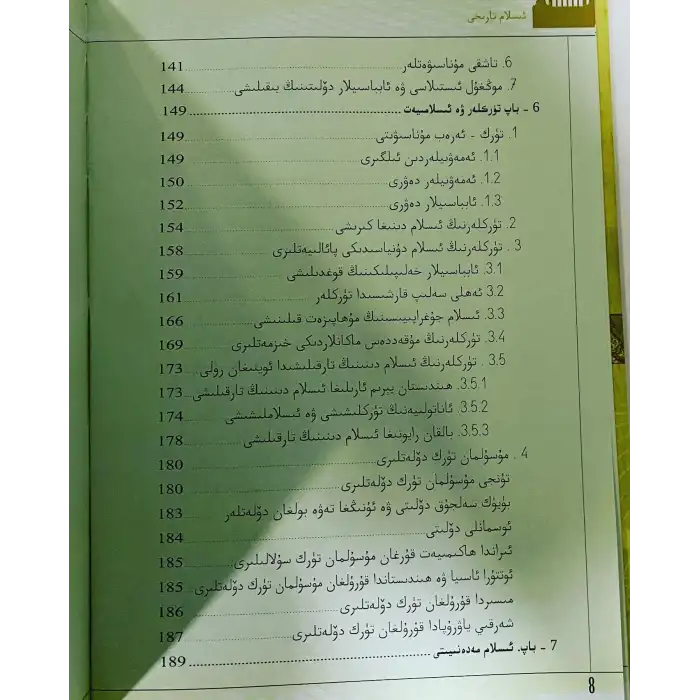 ئىسلام تارىخى
6. تاشقى مۇناسىۋەتلەر 141
7. موڭغۇل ئىستىلاسى ۋە ئابباسىيلار دۆلىتىنىڭ يىقىلىشى 144
6 - باپ تۈركلەر ۋە ئىسلامىيەت 149
1. تۈرك - ئەرەب مۇناسىۋىتى 149
1.1. ئەمەۋىيلەردىن ئىلگىرى 149
1.2. ئەمەۋىيلەر دەۋرى 150
1.3. ئابباسىيلار دەۋرى 152
2. تۈركلەرنىڭ ئىسلام دىنىغا كىرىشى 154
3 . تۈركلەرنىڭ ئىسلام دۇنياسىدىكى پائالىيەتلىرى 158
3.1. ئابباسىيلار خەلىپىلىكىنىڭ قوغدىلىشى 159
3.2 ئەھلى سەلىپ قارشىسىدا تۈركلەر 161
3.3. ئىسلام جۇغراپىيىسىنىڭ مۇھاپىزەت قىلىنىشى 166
3.4. تۈركلەرنىڭ مۇقەددەس ماكانلاردىكى خىزمەتلىرى 169
3.5 . تۈركلەرنىڭ ئىسلام دىنىنىڭ تارقىلىشىدا ئوينىغان رولى 173
3.5.1. ھىندىستان يېرىم ئارىلىغا ئىسلام دىنىنىڭ تارقىلىشى 173
3.5.2. ئاناتولىيەنىڭ تۈركلىشىشى ۋە ئىسلاملىشىشى 174
3.5.3. بالقان رايونىغا ئىسلام دىنىنىڭ تارقىلىشى 178
4 . مۇسۇلمان تۈرك دۆلەتلىرى 180
تۇنجى مۇسۇلمان تۈرك دۆلەتلىرى 180
بۈيۈك سەلجۇق دۆلىتى ۋە ئۇنىڭغا تەۋە بولغان دۆلەتلەر 183
ئوسمانلى دۆلىتى 184
ئىراندا ھاكىمىيەت قۇرغان مۇسۇلمان تۈرك سۇلالىلىرى 185
ئوتتۇرا ئاسىيا ۋە ھىندىستاندا قۇرۇلغان مۇسۇلمان تۈرك دۆلەتلىرى 185
مىسىردا قۇرۇلغان تۈرك دۆلەتلىرى 186
شەرقىي ياۋرۇپادا قۇرۇلغان تۈرك دۆلەتلىرى 187
7 - باپ. ئىسلام مەدەنىيىتى 189
8